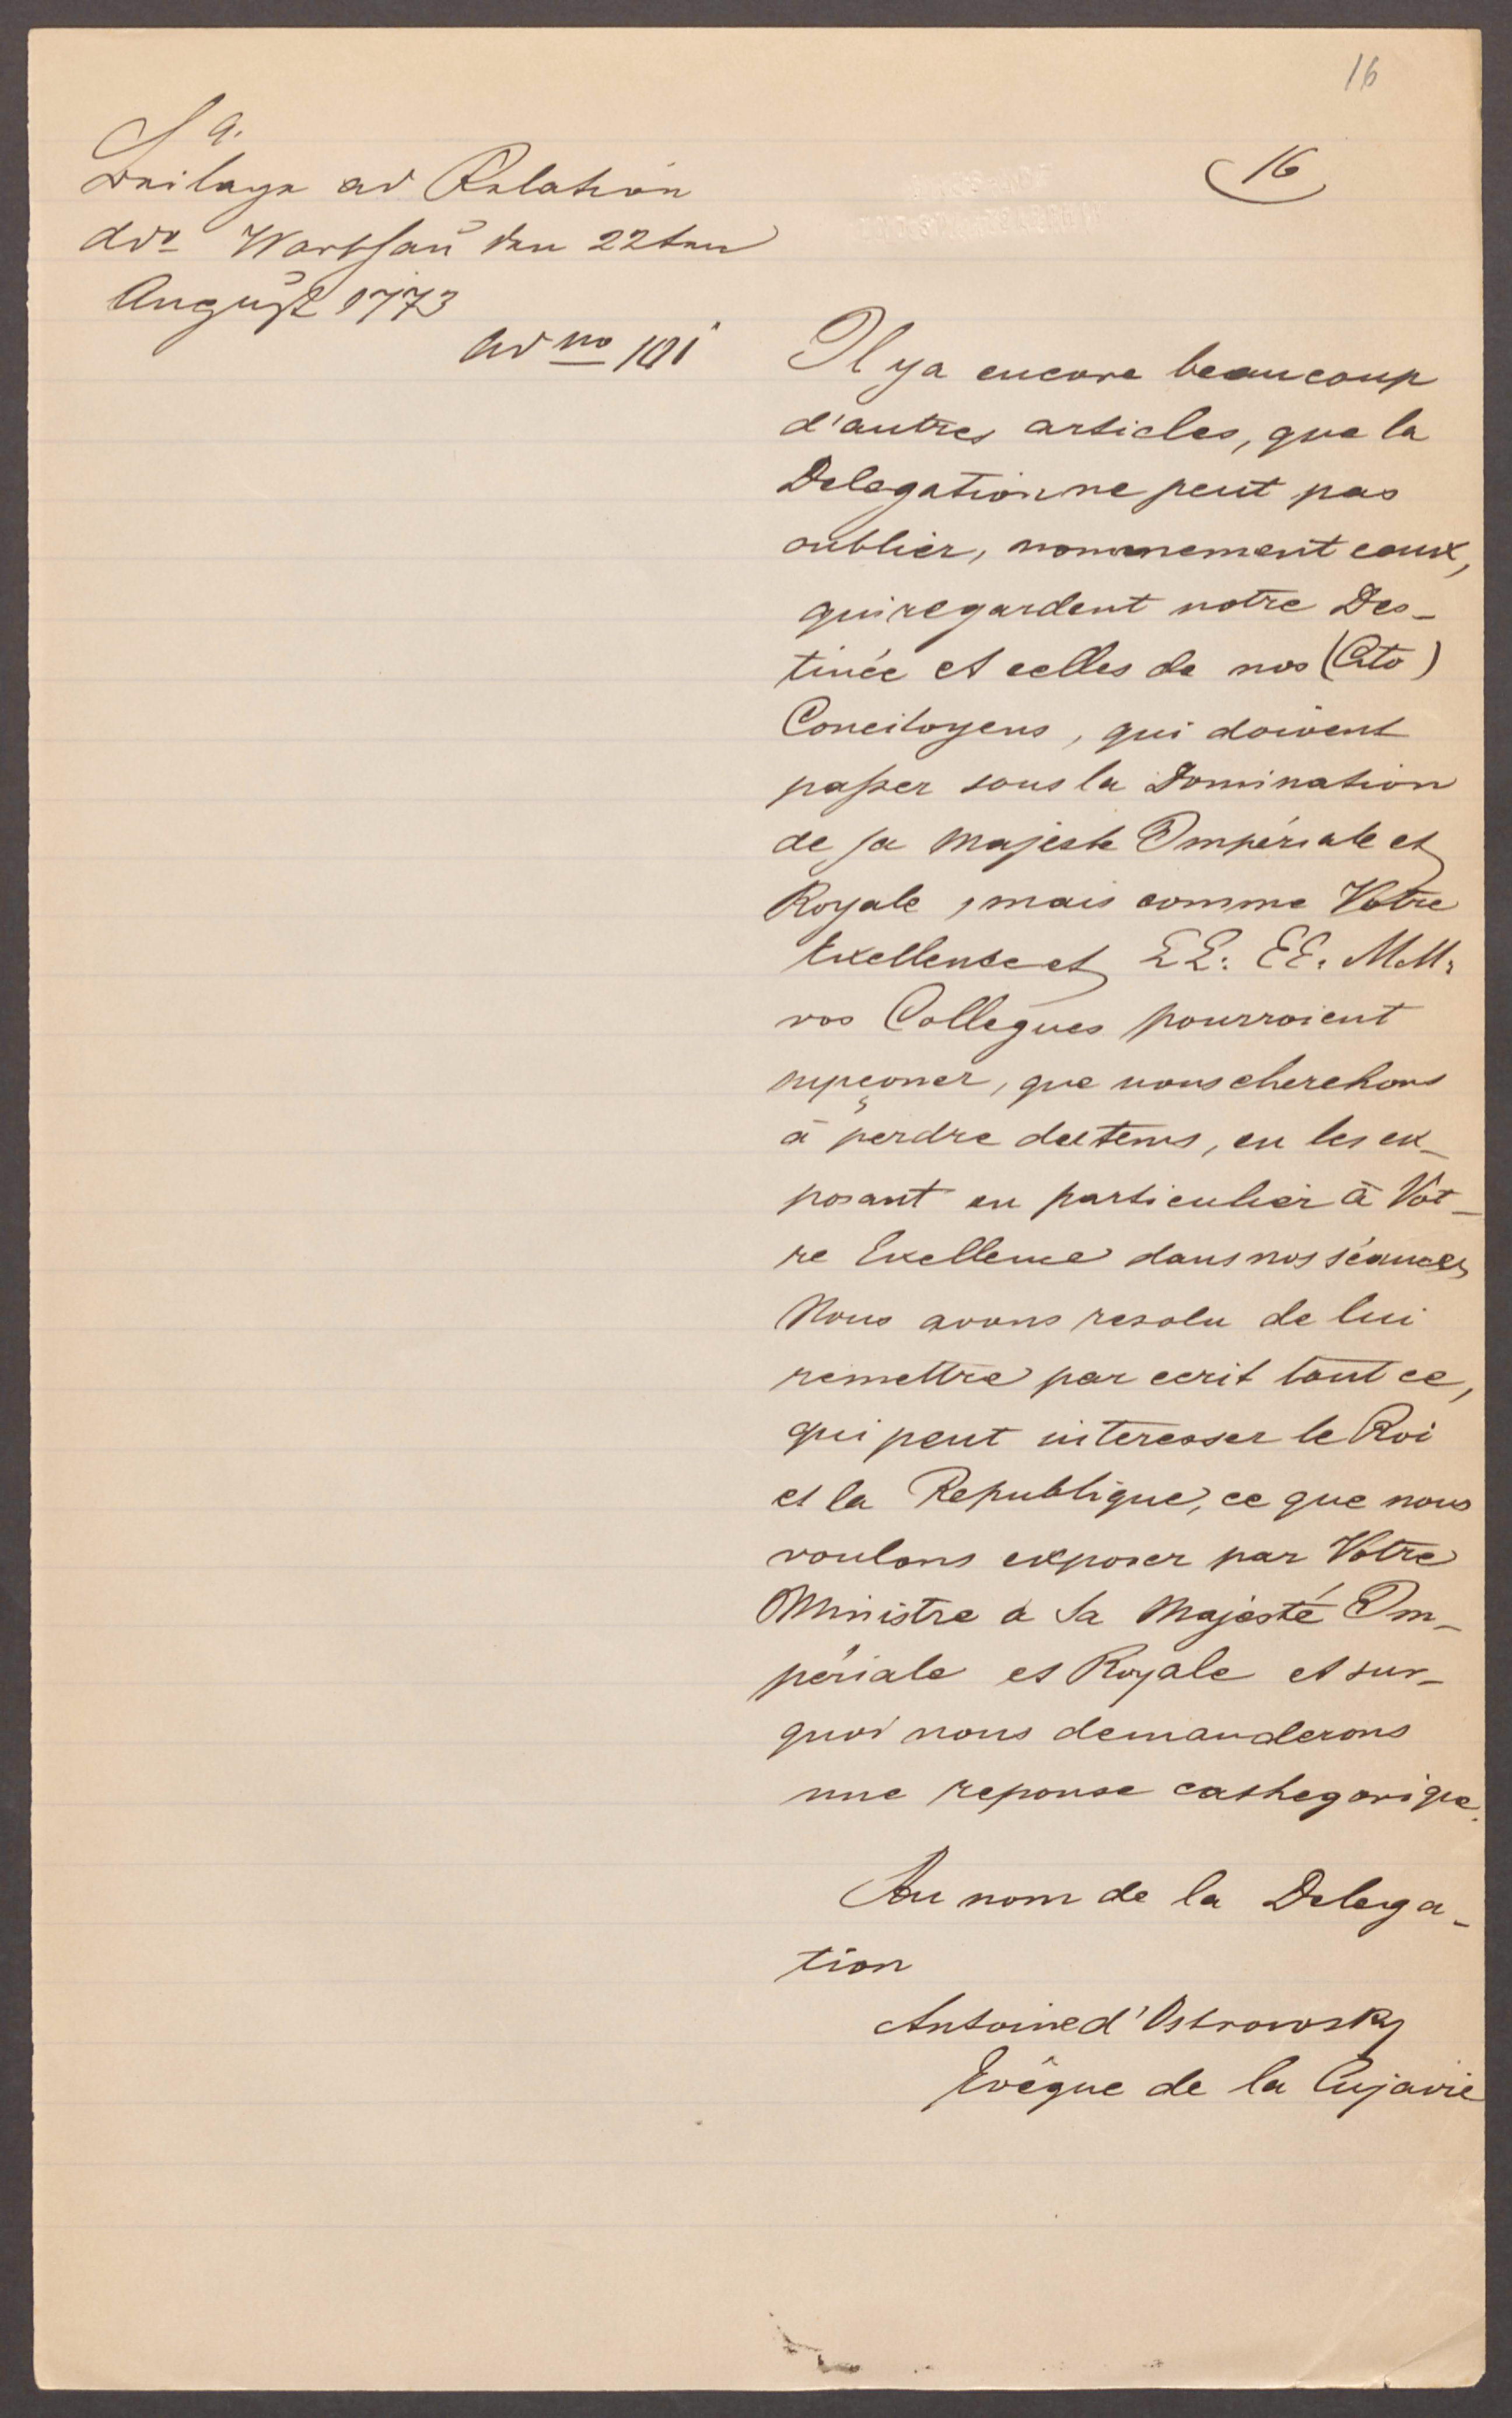 16
16
Sa.
Beilage ad Relation
ddo Warschau den 22ten
August 1773
ad no 101
Il y a encore beaucoup
d'autres articles, que la
Delegation ne peut pas
oublier, nommement ceux,
qui regardent notre Des-
tinée et celles de nos (Cito)
Concitoyens, qui doivent
passer sous la Domination
de sa Majeste Impériale et
Royale, mais comme Votre
Exellense et LL: EE. M.M.
vos Collegues pourroient
supçoner, que nous cherchons
à perdre du tems, en les ex-
posant en particulier à Vot-
re Exellence dans nos séances
Nous avons resolu de lui
remettre par ecrit tout ce,
qui peut interesser le Roi
et la Republique, ce que nous
voulons exposer par Votre
Ministre a Sa Majesté Im-
périale et Royale et sur-
quoi nous demanderons
une reponse cathegorique.
Au nom de la Delega-
tion
Antoine d'Ostrowsky
Evêque de la Cujavie